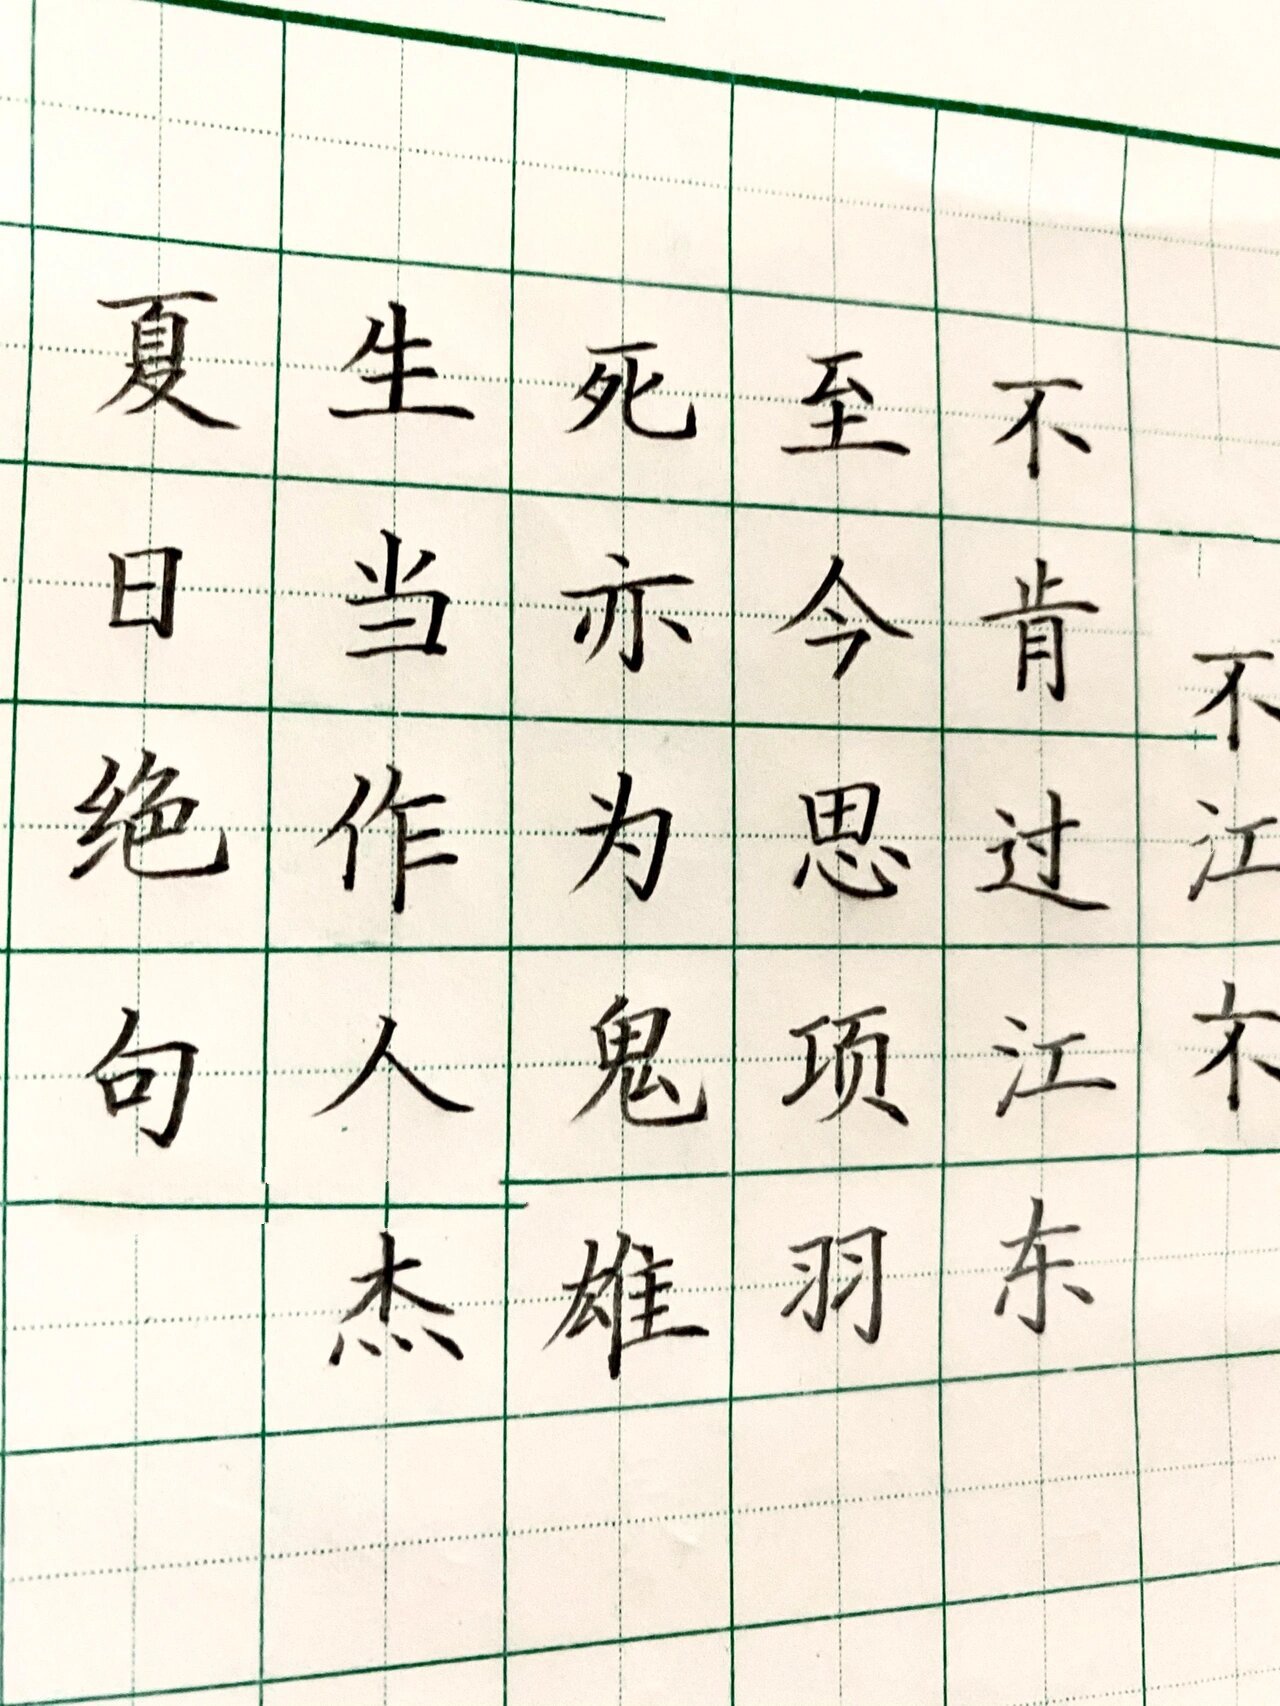 夏日绝句
生当作人杰
死亦为鬼雄
至今思项羽
不肯过江东
不江